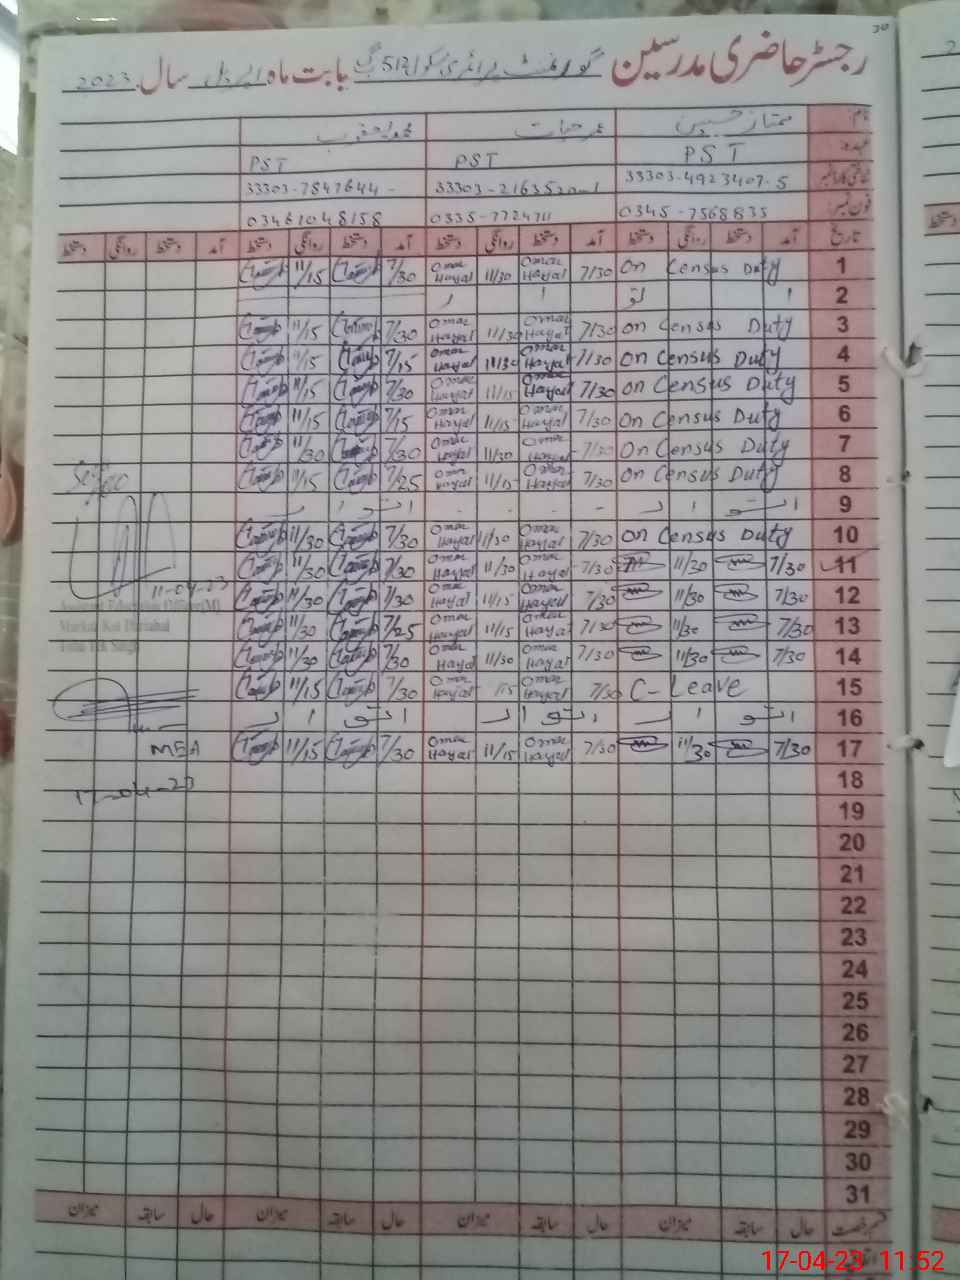 30
رجسٹر حاضری مدرسین گورنمنٹ پرائمری سکول 512 گ ب بابت ماہ اپریل سال 2023
نام: ممتاز حسین عمر حیات محمد یعقوب
عہدہ PST PST PST
شناختی کارڈ نمبر 33303-4923407-5 33303-2163520-1 33303-7847644-
فون نمبر: 0345-7568835 0335-7724711 03461048158
تاریخ آمد دستخط روانگی دستخط آمد دستخط روانگی دستخط آمد دستخط روانگی دستخط آمد دستخط روانگی دستخط
1 On Census Duty 7/30 Omar Hayat 11/30 Omar Hayat 7/30 11/15
2 ا تو ا ر
3 on Census Duty 7/30 Omar Hayat 11/30 Omar Hayat 7/30 11/15
4 on Census Duty 7/30 Omar Hayat 11/30 Omar Hayat 7/15 11/15
5 on Census Duty 7/30 Omar Hayat 11/15 Omar Hayat 7/30 11/15
6 on Census Duty 7/30 Omar Hayat 11/15 Omar Hayat 7/15 11/15
7 On Census Duty 7/30 Omar Hayat 11/30 Omar Hayat 7/30 11/30
8 On Census Duty 7/30 Omar Hayat 11/15 Omar Hayat 7/25 11/15
9 اتو ا ر - - - - اتو ا ر
10 on Census Duty 7/30 Omar Hayat 11/30 Omar Hayat 7/30 11/30
11 7/30 11/30 7/30 Omar Hayat 11/30 Omar Hayat 7/30 11/30
12 7/30 11/30 7/30 Omar Hayat 11/15 Omar Hayat 7/30 11/30
13 7/30 11/30 7/30 Omar Hayat 11/15 Omar Hayat 7/25 11/30
14 7/30 11/30 7/30 Omar Hayat 11/30 Omar Hayat 7/30 11/30
15 C-Leave 7/30 Omar Hayat /15 Omar Hayat 7/30 11/15
16 اتو ا ر اتو ا ر اتو ا ر
17 7/30 11/30 7/30 Omar Hayat 11/15 Omar Hayat 7/30 11/15
18
19
20
21
22
23
24
25
26
27
28
29
30
31
11-04-23
Assistant Education Officer(M)
Markaz Kot
Toba Tek Singh
MEA
17-04-23
قسم رخصت حال سابقہ میزان حال سابقہ میزان حال سابقہ میزان حال سابقہ میزان
17-04-23 11:52